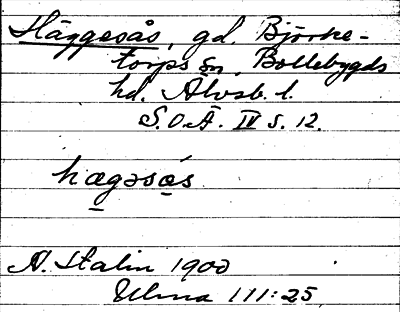 Häggesås, gd. Björke-
torps sn, Bollebygds
hd. Älvsb. l.
S.O.Ä. IV s. 12.
hægəsås
N. Stalin 1900
Ulma 111:25